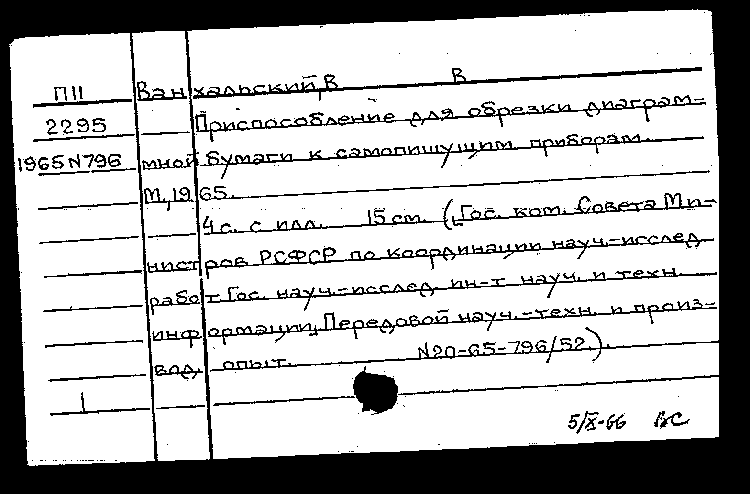 П11 Ванхальский, В В
2295 Приспособление для обрезки диаграм-
1965 N796 мной бумаги к самопишущим приборам.
М., 1965.
4 с. с илл. 15 см. (Гос. ком. Совета Ми-
нистров РСФСР по координации науч.-исслед.
работ Гос. науч.-исслед. ин-т науч. и техн.
информации, Передовой науч.-техн. и произ-
вод. опыт. N20-65-796/52.).
1
5/X-66 ВС